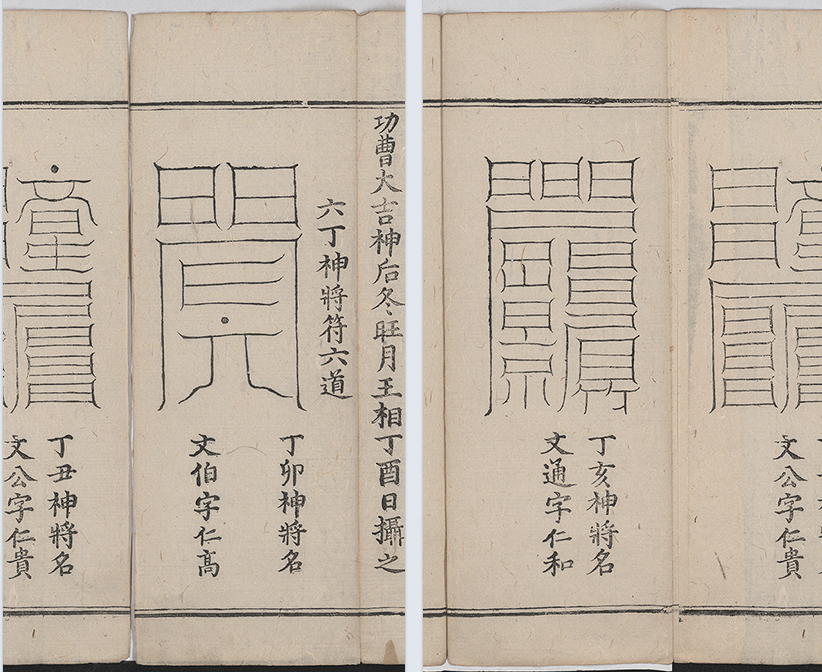 功曹大吉神后冬旺月王相丁酉日攝之
六丁神將符六道
丁卯神將名
文伯字仁高
丁丑神將名
文公字仁貴
文公字仁貴
丁亥神將名
文通字仁和